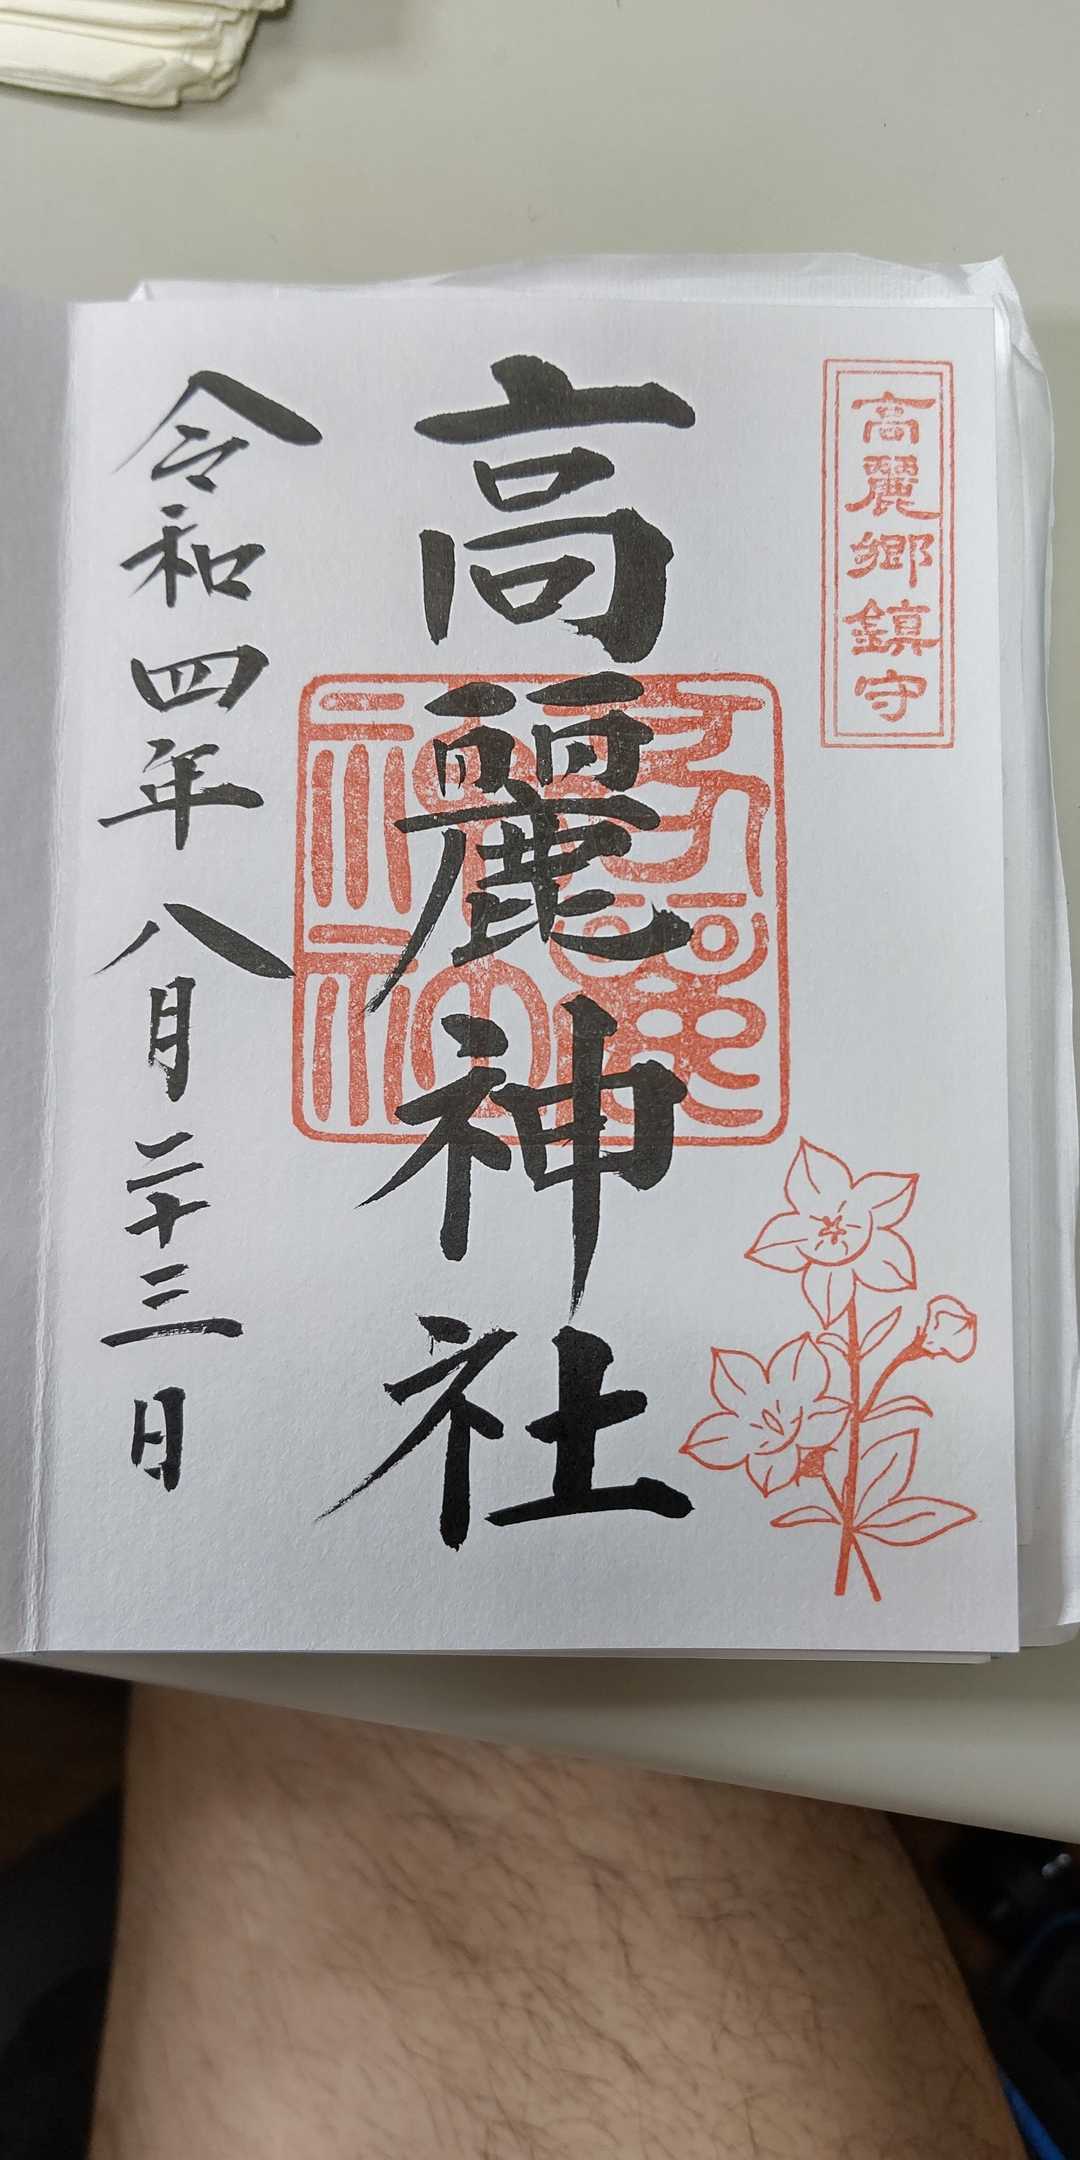 高麗郷鎮守
高麗神社
令和四年八月二十三日